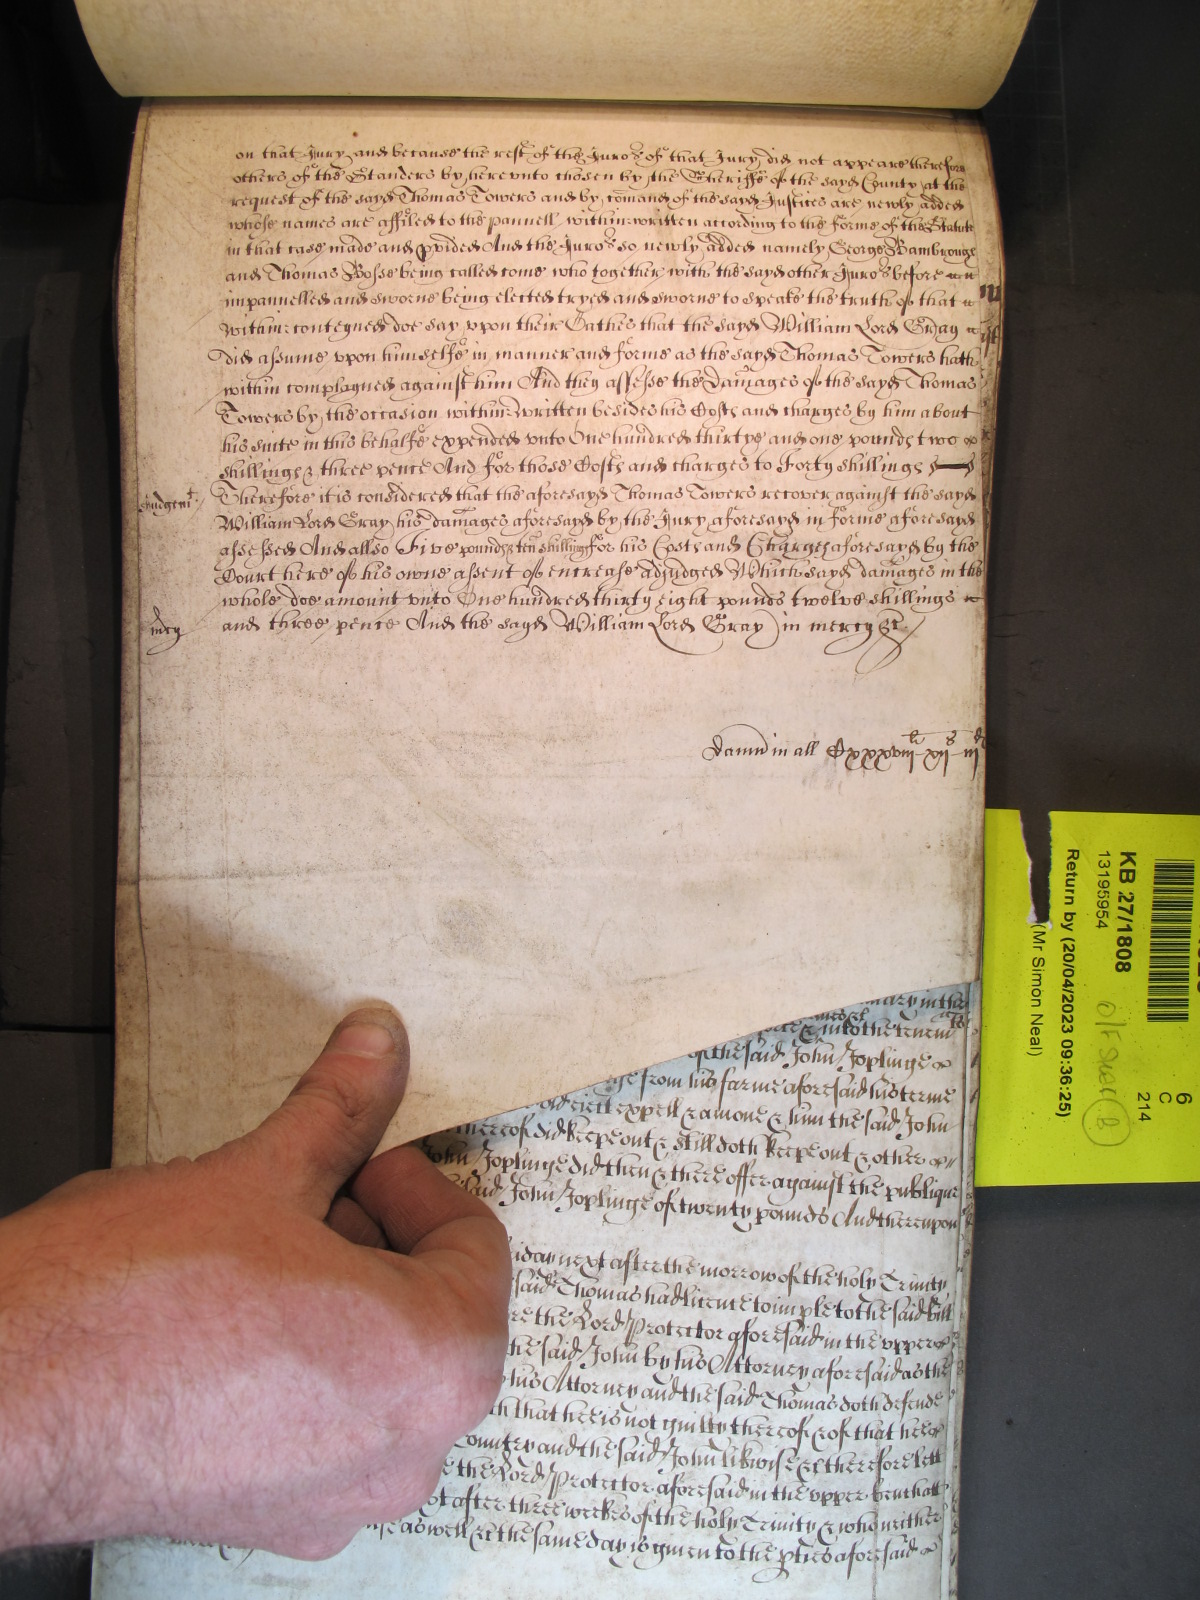 on that Jury and because the rest of the Juro.rs of that Jury did not appeare therefore
others of the Standers by here unto chosen by the Sheriffe of the sayd County at the
request of the sayd Thomas Towers and by comand of the sayd Justices are newly added
whose names are affiled to the pannell within written according to the forme of the Statute
in that case made and pvided And the Juro.rs so newly added namely George Bambrough
and Thomas Bosse being called come who together with the sayd other Juro.rs before
impannelled and sworne being elected tryed and sworne to speake the truth of that
within conteyned doe say upon their Oathes that the sayd William Lord Gray
did assume upon himselfe in manner and forme as the sayd Thomas Towers hath
within complayned against him And they assesse the Damages of the sayd Thomas
Towers by the occasion within written besides his Costs and charges by him about
his suite in this behalfe expended unto One hundred thirtye and one pounds two
shillings & three pence And for those Costs and charges to Forty shillings
Judgem.t
Therefore it is considered that the aforesayd Thomas Towers recover against the sayd
William Lord Gray his damages aforesayd by the Jury aforesayd in forme aforesayd
assessed And allso Five pounds & ten shillings for his Costs and Charges aforesayd by the
Court here of his owne assent of encrease adjudged Which sayd damages in the
whole doe amount unto One hundred thirty eight pounds twelve shillings
mcy
and three pence And the sayd William Lord Gray in mercy &c
Damn in all Cxxxviij li xij s iij d
in the
& into the tenem
of the said John Joplinge
from his farme aforesaid his terme
eiect expell & amove & him the said John
thereof did keepe out & still doth keepe out & other
John Joplinge did then & there offer against the publique
said John Joplinge of twenty pounds And thereupon
next after the morrow of the holy Trinity
said Thomas had licence to imple to the said bill
the Lord Protector aforesaid in the upper
the said John by his Attorney aforesaid as the
his Attorney and the said Thomas doth defend
that hee is not guilty thereof & of that hee
Country and the said John likwise &c therefore lett
the Lord Protector aforesaid in the upper bench att
after three weekes of the holy Trinity & who neither
as well &c the same day is given to the pties aforesaid
KB 27/1808
13195954
Return by (20/04/2023 09:36:25)
(Mr Simon Neal)
6
C
214